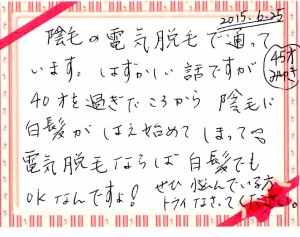 2015.6.25
陰毛の電気脱毛で通って
います。はずかしい話ですが
45才
みゆき
40才を過ぎたころから 陰毛に
白髪がはえ始めてしまって
電気脱毛ならば白髪でも
OKなんですよ! ぜひ悩んでいる方
トライなさってください。